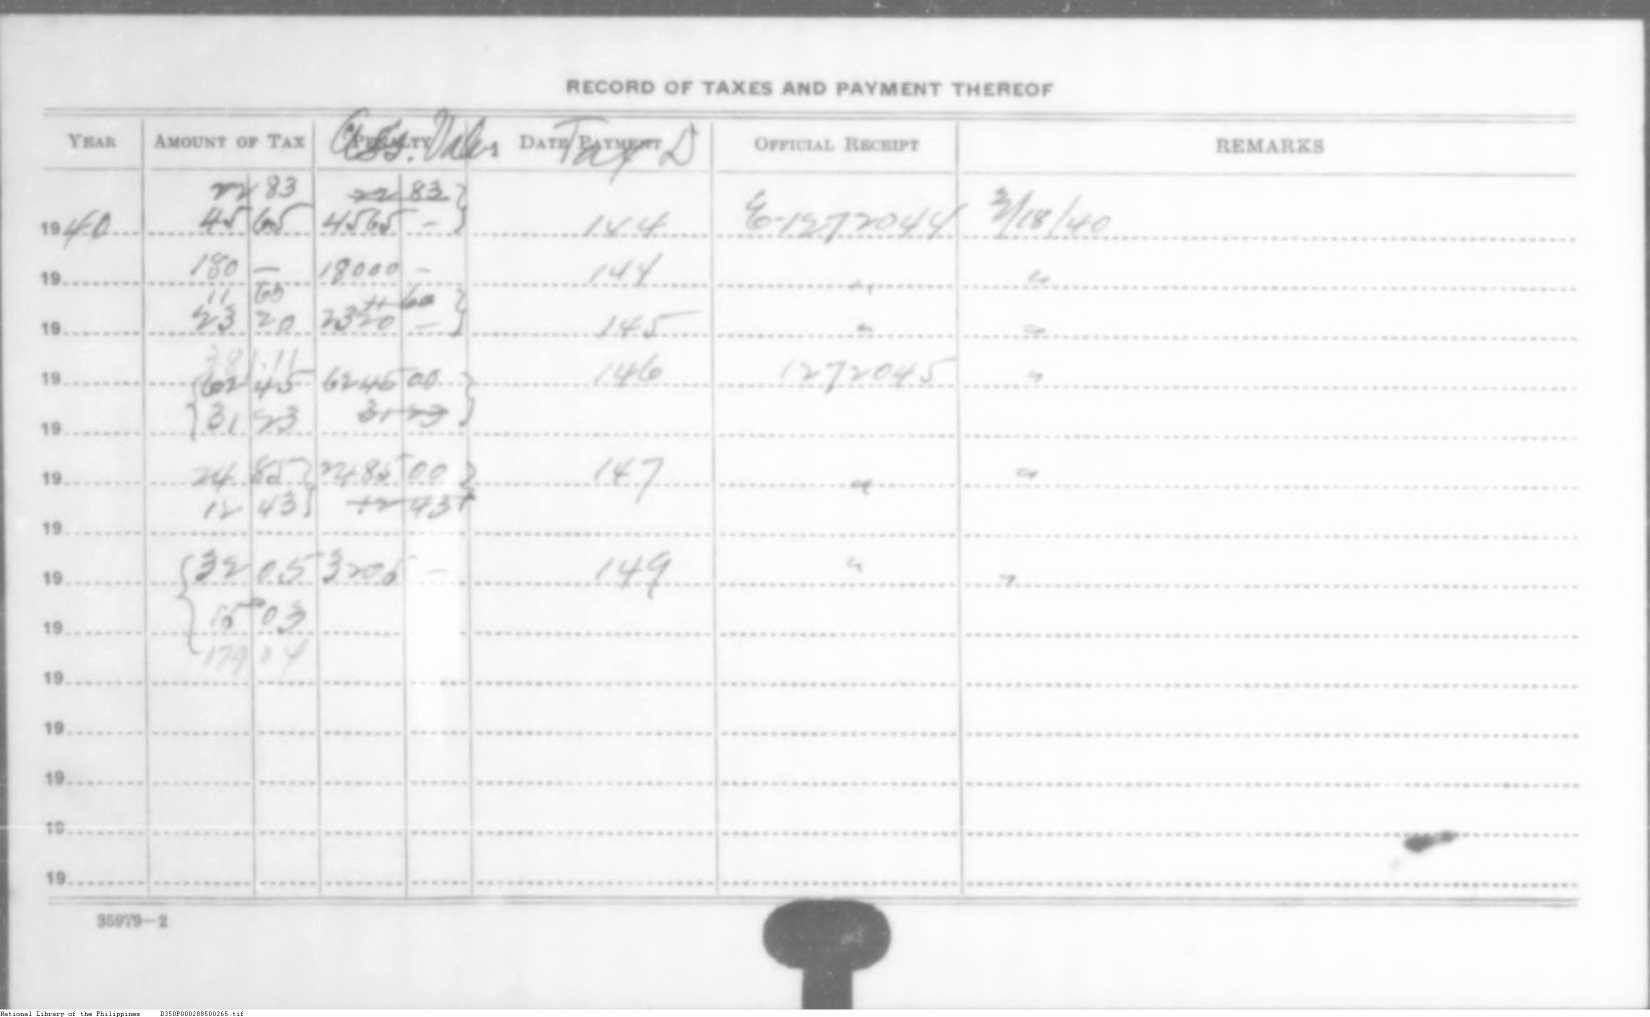 RECORD OF TAXES AND PAYMENT THEREOF
YEAR AMOUNT OF TAX PENALTY DATE PAYMENT OFFICIAL RECEIPT REMARKS
Ass. Value Tax D
22 83 22 83
1940 45 65 4565 — 144 E-1272044 3/18/40
19 180 — 18000 — 144 " "
11 60 11 60
19 23 20 2320 — 145 " "
381.11
19 62 45 6245 00 146 1272045 "
19 31 23 31 23
19 24 85 2485 00 147 " "
12 43 12 43
19
19 32 05 3205 — 149 " "
19 16 03
179 04
19
19
19
19
19
35979—2
National Library of the Philippines D350P000288500265.tif